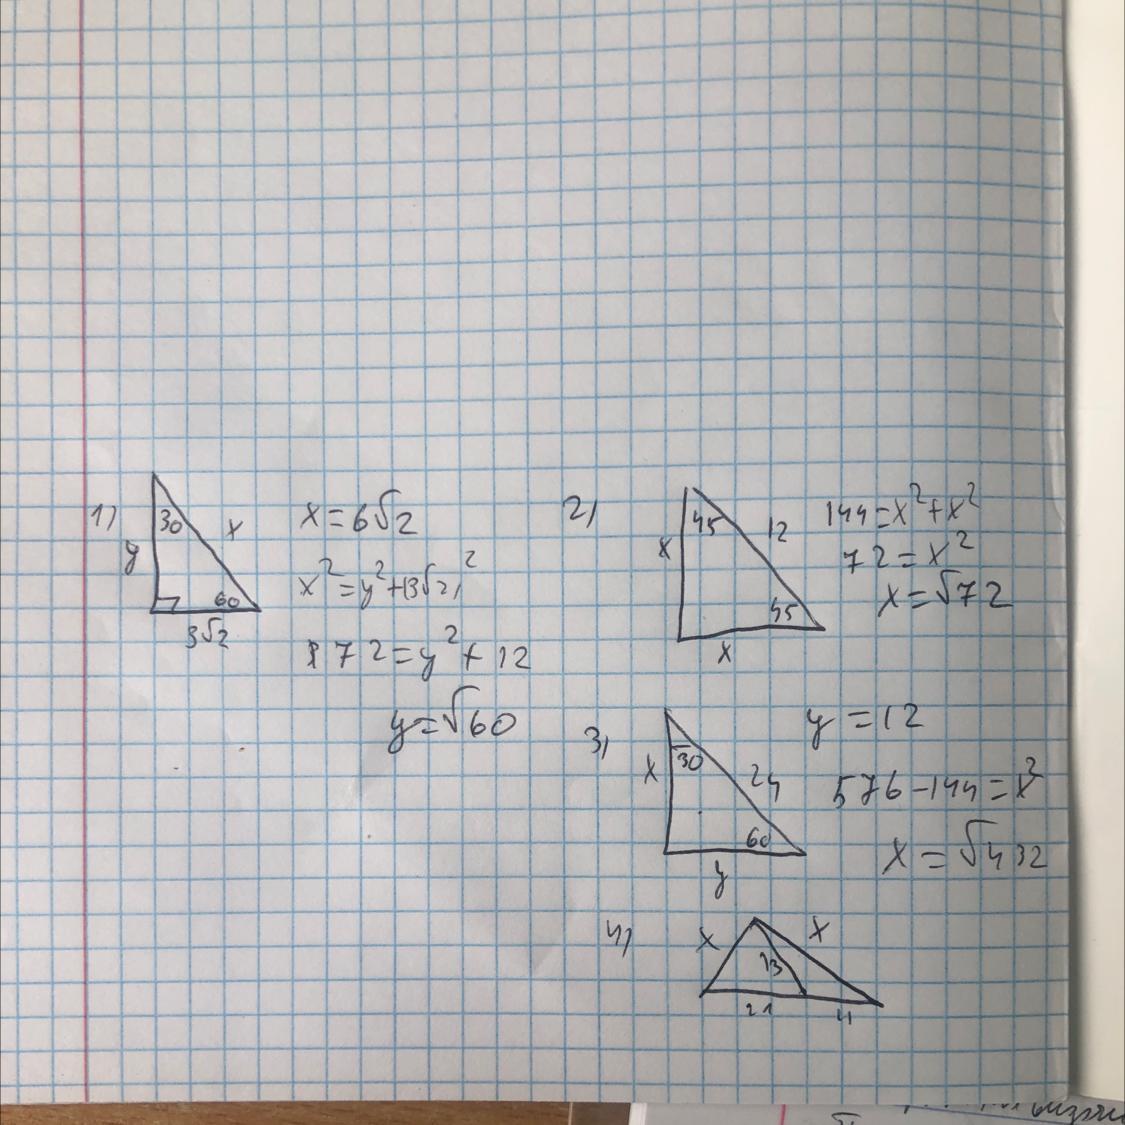 1)
30
x
y
60
3√2
x=6√2
x²=y²+(3√2)²
72=y²+12
y=√60
2)
45
12
x
45
x
144=x²+x²
72=x²
x=√72
3)
x
30
24
60
y
y=12
576-144=x²
x=√432
4)
x
x
13
21